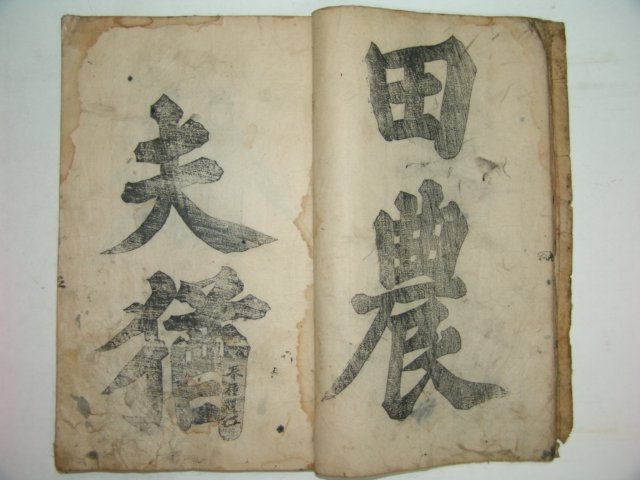 田
農
夫
猶